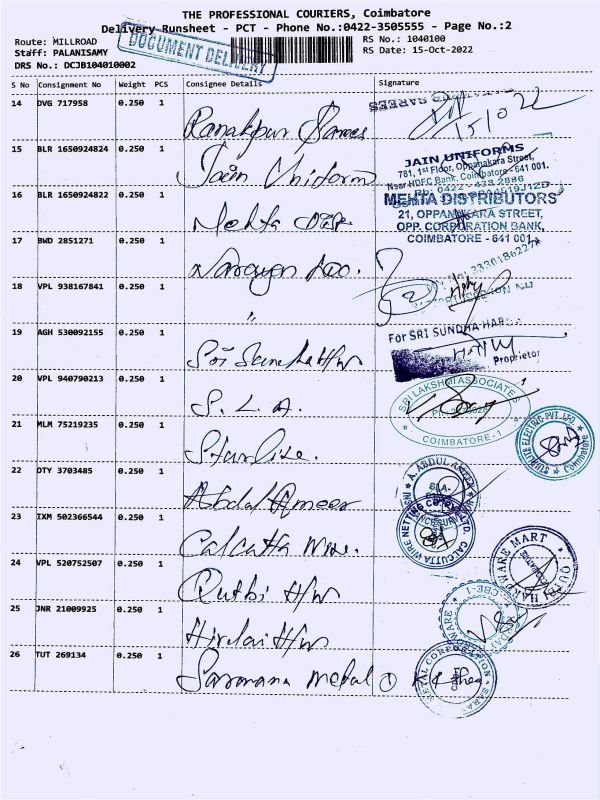 THE PROFESSIONAL COURIERS, Coimbatore
Delivery Runsheet - PCT - Phone No.:0422-3505555 - Page No.:2
Route: MILLROAD
RS No.: 1040100
Staff: PALANISAMY
RS Date: 15-Oct-2022
DRS No.: DCJB104010002
DOCUMENT DELIVERY
S No Consignment No Weight PCS Consignee Details Signature
14 DVG 717958 0.250 1
Ranakpur Sarees
SAREES
15/10/22
15 BLR 1650924824 0.250 1
Jain Uniform
JAIN UNIFORMS
781, 1st Floor, Oppanakara Street,
Near HDFC Bank, Coimbatore - 641 001.
16 BLR 1650924822 0.250 1
Mehta Dist
MEHTA DISTRIBUTORS
21, OPPANAKARA STREET,
OPP. CORPORATION BANK,
COIMBATORE - 641 001
17 BWD 2851271 0.250 1
Narayan
18 VPL 938167841 0.250 1
"
19 AGH 530092155 0.250 1
Sri H/W
For SRI SUNDHA
Proprietor
20 VPL 940790213 0.250 1
S. L. A.
SRI LAKSHMI ASSOCIATES
COIMBATORE - 1
21 MLM 75219235 0.250 1
Starlite
ELECTRIC PVT. LTD.
Coimbatore
22 DTY 3703485 0.250 1
Abdul Ameer
A. ABDUL AMEER
23 IXM 502366544 0.250 1
Calcutta Wire.
CALCUTTA WIRE NETTING CO.
24 VPL 520752507 0.250 1
Qutbi H/W
HARDWARE MART
QUTBI
25 JNR 21009925 0.250 1
Hirelai H/W
CBE-1
26 TUT 269134 0.250 1
Saravana Metal
METAL CORPORATION